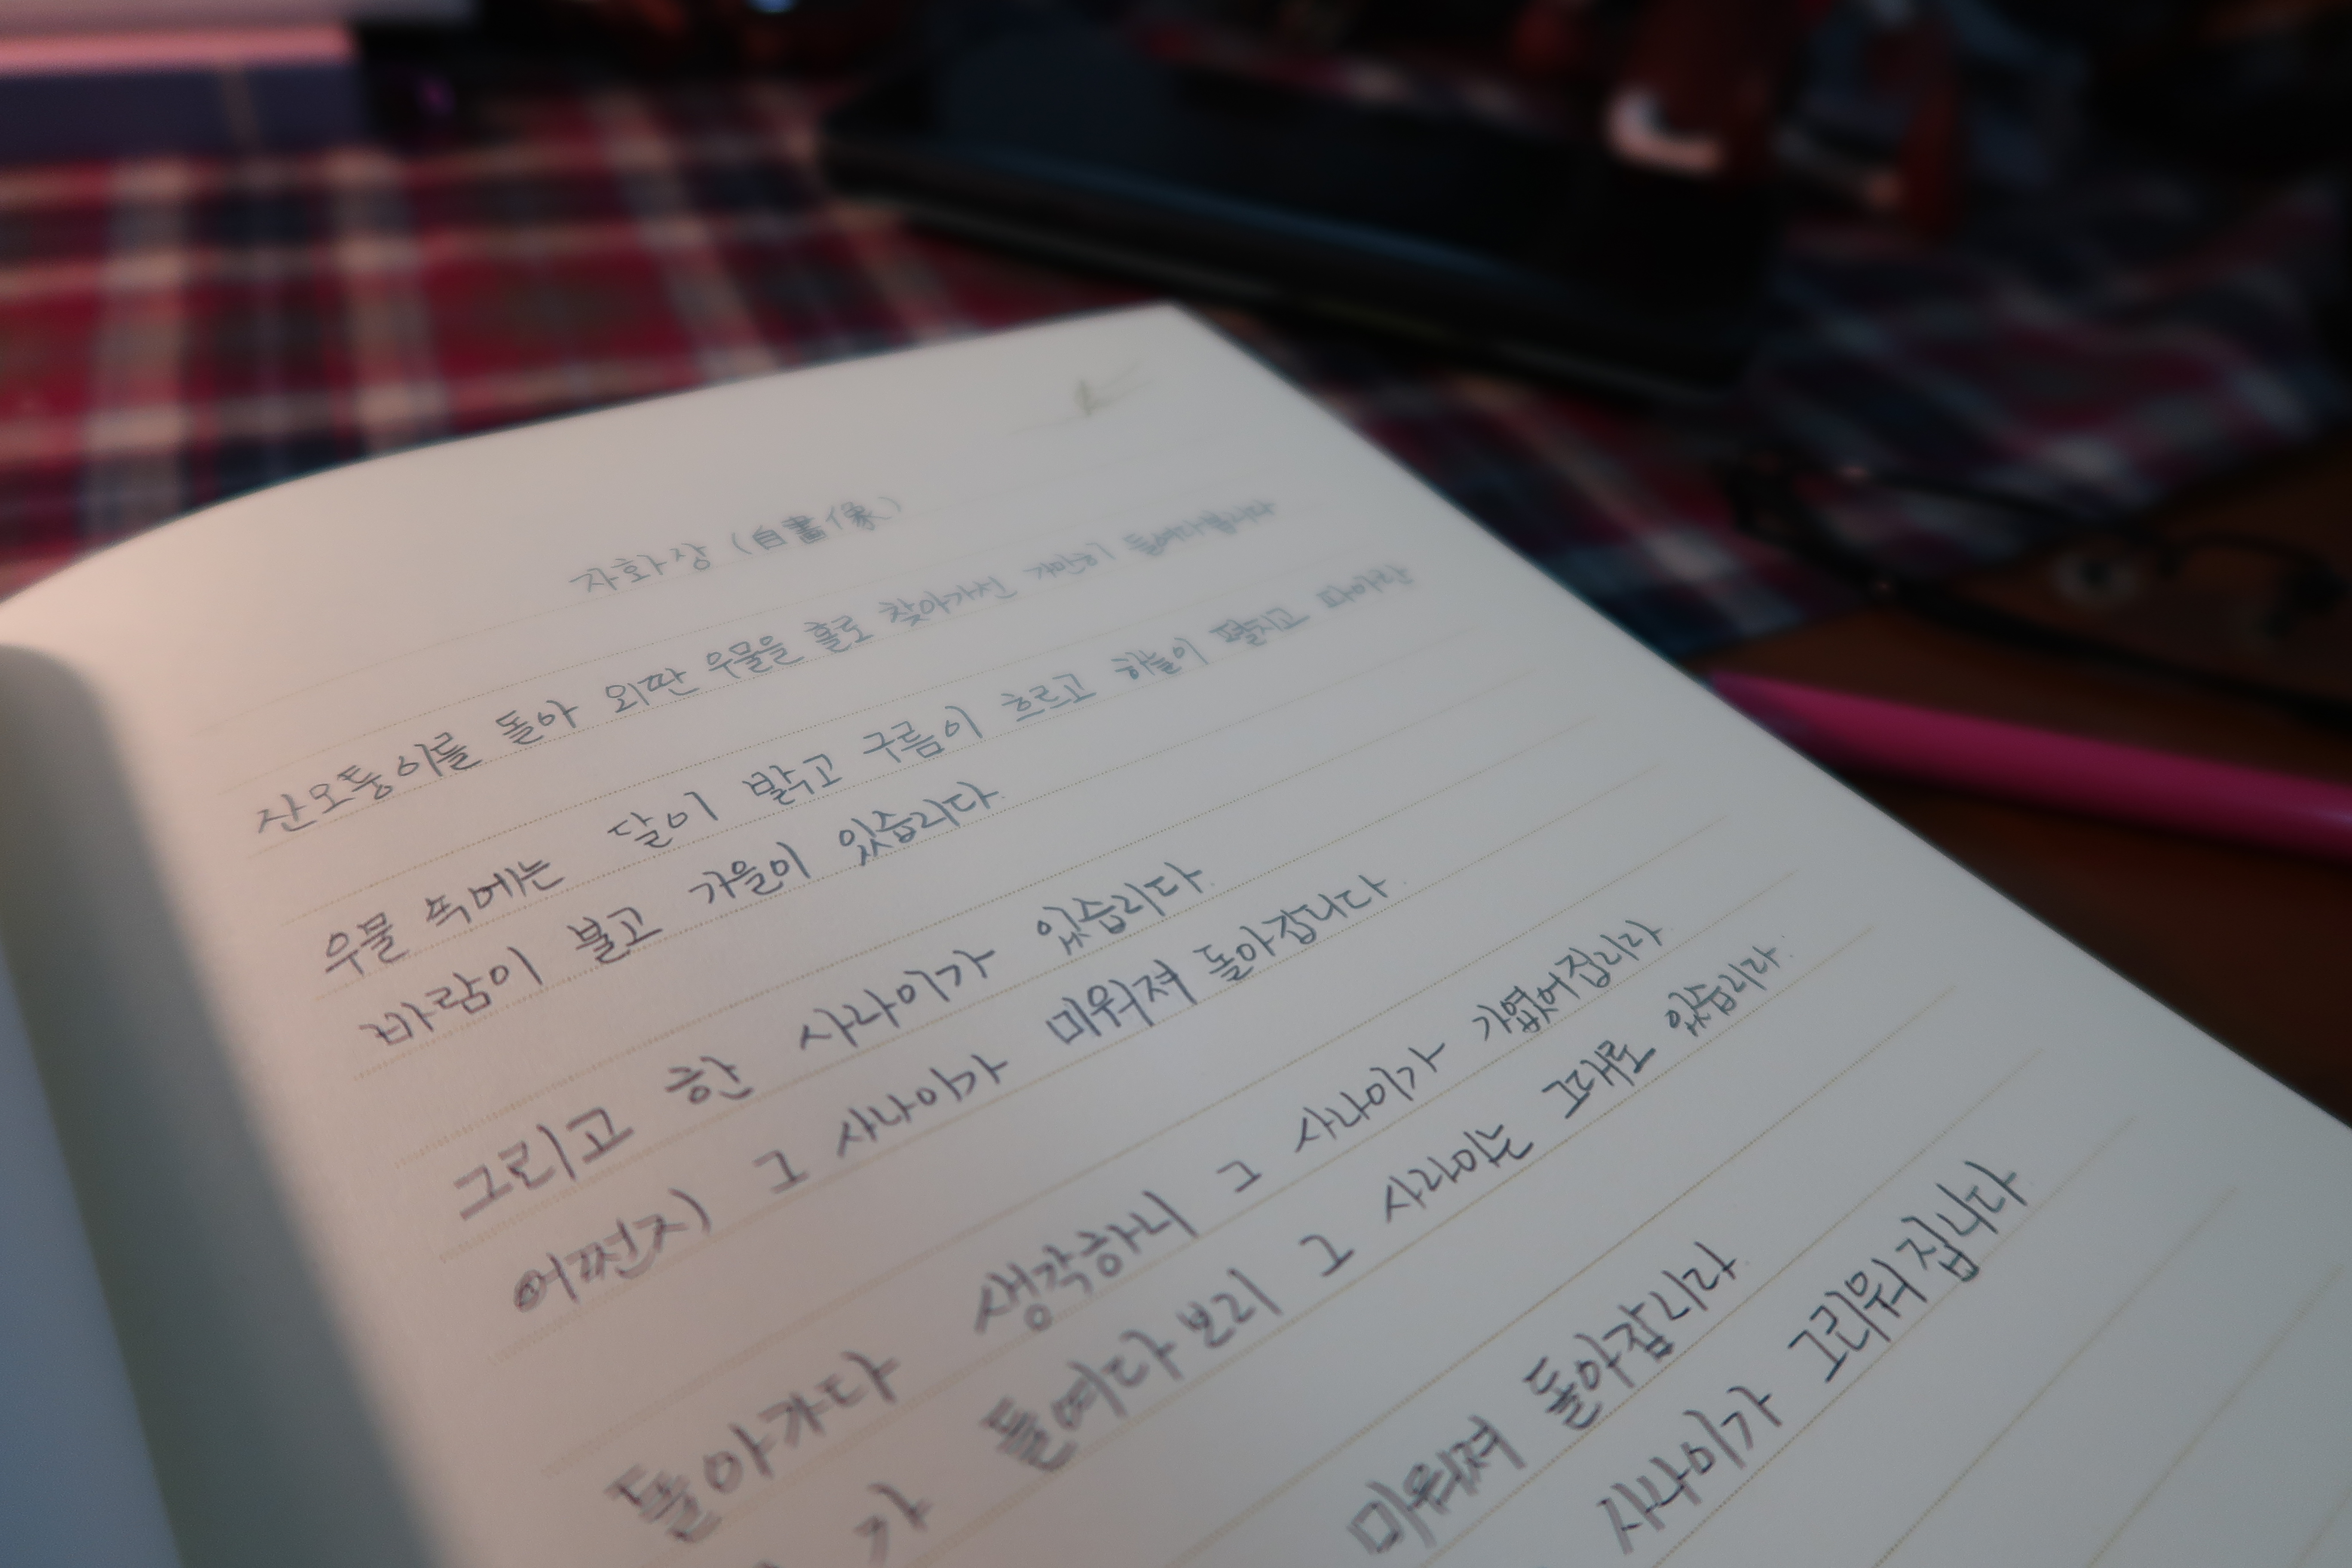 자화상 (自畫像)
산모퉁이를 돌아 외딴 우물을 홀로 찾아가선 가만히 들여다봅니다
우물 속에는 달이 밝고 구름이 흐르고 하늘이 펼치고 파아란
바람이 불고 가을이 있습니다.
그리고 한 사나이가 있습니다.
어쩐지 그 사나이가 미워져 돌아갑니다.
돌아가다 생각하니 그 사나이가 가엾어집니다
가 들여다보니 그 사나이는 그대로 있습니다.
미워져 돌아갑니다.
사나이가 그리워집니다